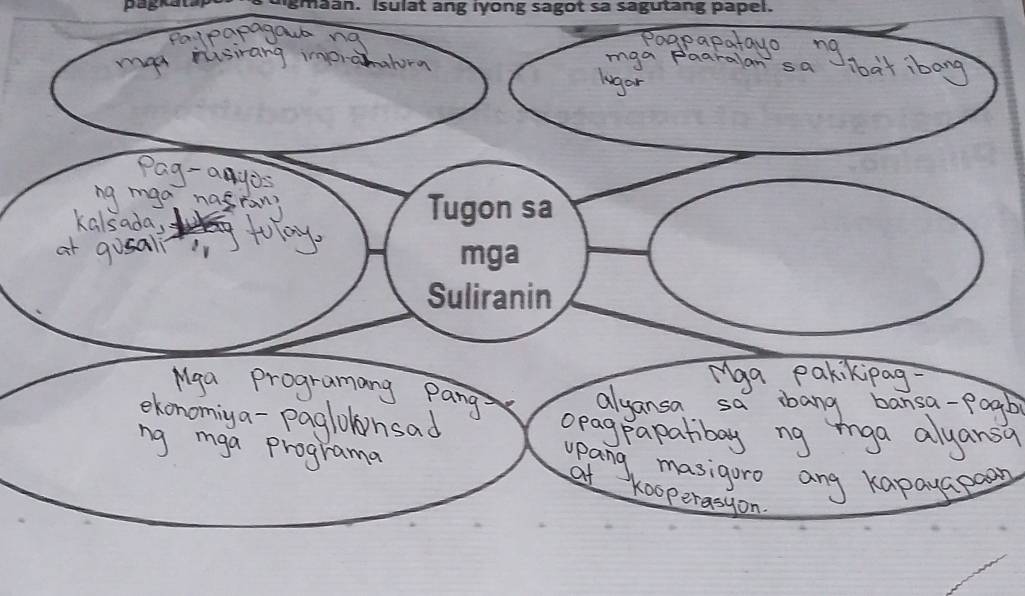 digmaan. Isulat ang iyong sagot sa sagutang papel.
Pagpapagawa ng
mga nasirang
Pagpapatayo ng
mga Paaralan sa ibat ibang
lugar
Pag-aayos
ng mga nasirang
Kalsada, tulay
at gusali
Tugon sa
mga
Suliranin
Mga Programang Pang-
ekonomiya-paglulunsad
ng mga programa
Mga pakikipag-
alyansa sa ibang bansa-Pagb
opagpapatibay ng mga alyansa
upang masiguro ang kapayapaan
at kooperasyon.